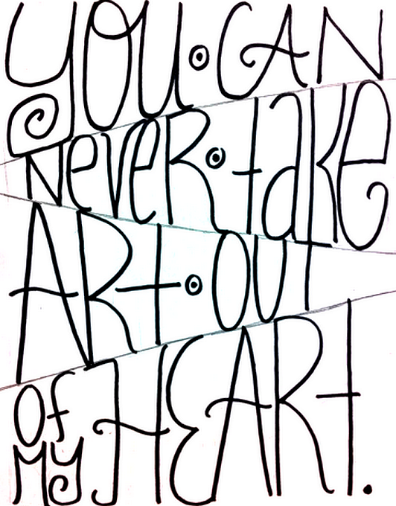 YOU • CAN
NEVER • take
ART • OUT
of MY HEART.